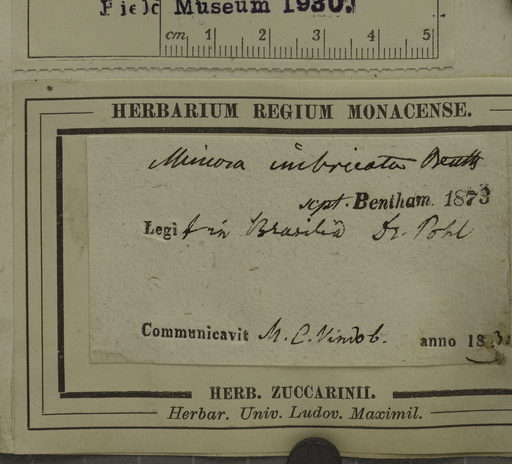 Field Museum 1930.
cm 1 2 3 4 5
HERBARIUM REGIUM MONACENSE.
Mimosa imbricata Benth
sept. Bentham. 1873
Legit in Brasilia Dr. Pohl
Communicavit M. C. Vindob. anno 183
HERB. ZUCCARINII.
Herbar. Univ. Ludov. Maximil.